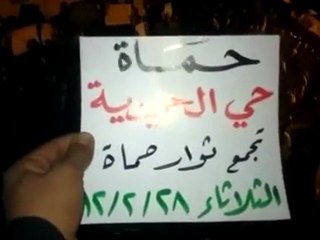 حماة
حي الحميدية
تجمع ثوار حماة
الثلاثاء ١٢/٢/٢٨